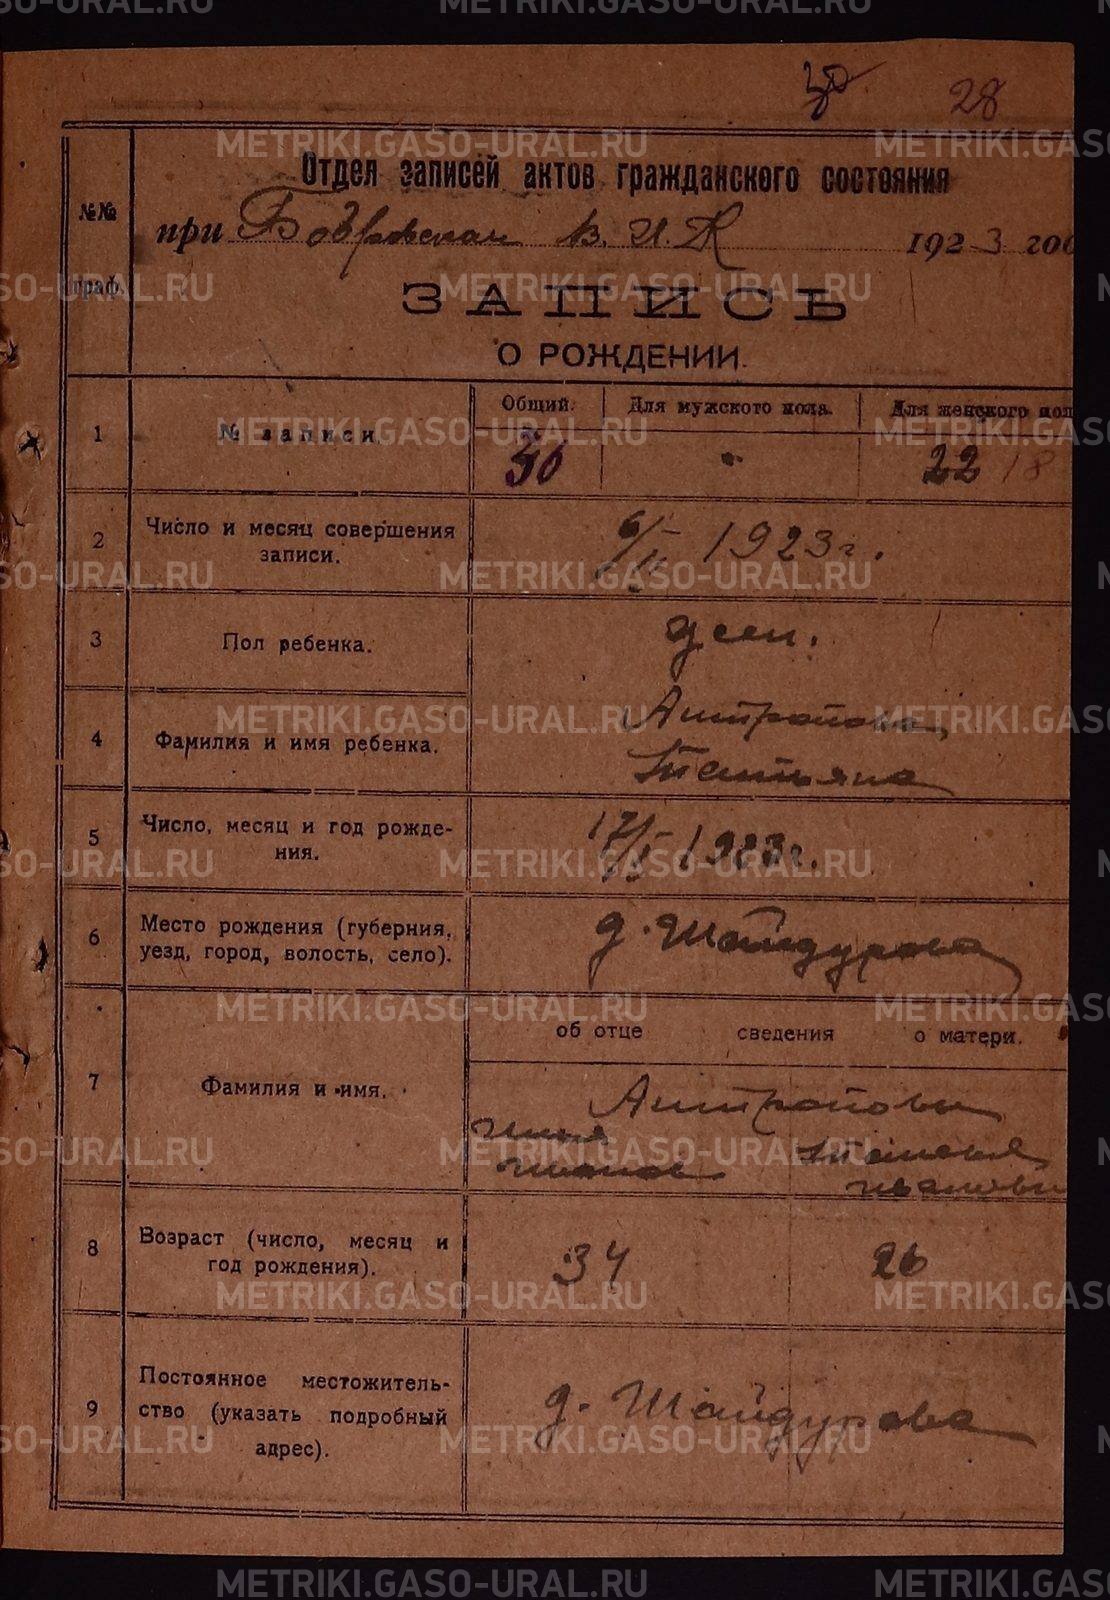 28
Отдел записей актов гражданского состояния
№№ граф.
при Бобровском В.И.К 1923 год
ЗАПИСЬ
О РОЖДЕНИИ.
1 № записи. Общий. Для мужского пола. Для женского пол
30 " 22 18
2 Число и месяц совершения записи. 6/II 1923 г.
3 Пол ребенка. жен.
4 Фамилия и имя ребенка. Антропова,
Татьяна
5 Число, месяц и год рождения. 17/I 1923 г.
6 Место рождения (губерния, уезд, город, волость, село). д. Шайдурова
об отце сведения о матери.
7 Фамилия и имя. Антроповы
Илья Таисья
Иванов Ивановн
8 Возраст (число, месяц и год рождения). 34 26
9 Постоянное местожительство (указать подробный адрес). д. Шайдурова
METRIKI.GASO-URAL.RU